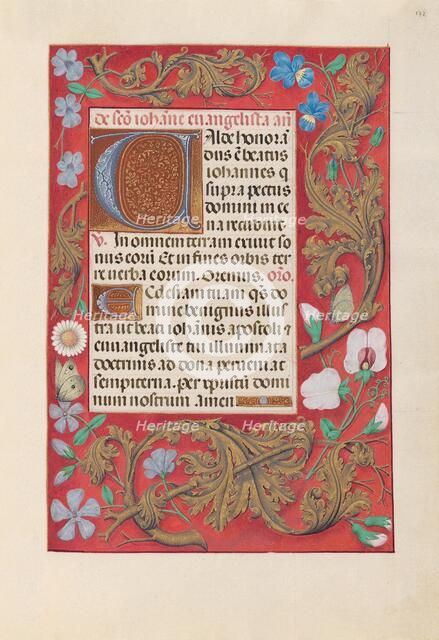 132
de scō iohāne euangelista añ
Valde honorā
dus ē beatus
iohannes q
supra pectus
domini in ce
na recubuit
V. In omnem terram exiuit so
nus eoru Et in fines orbis ter
re verba eorum. Oremus. oro.
Ecclesiam tuam qs do
mine benignus illus
tra ut beati iohānis apostoli
euangeliste tui illuminata
doctrinis ad dona perueniat
sempiterna. per xpristū domi
num nostrum amen
Heritage
Heritage
Heritage
Heritage
Heritage
Heritage
Heritage
Heritage